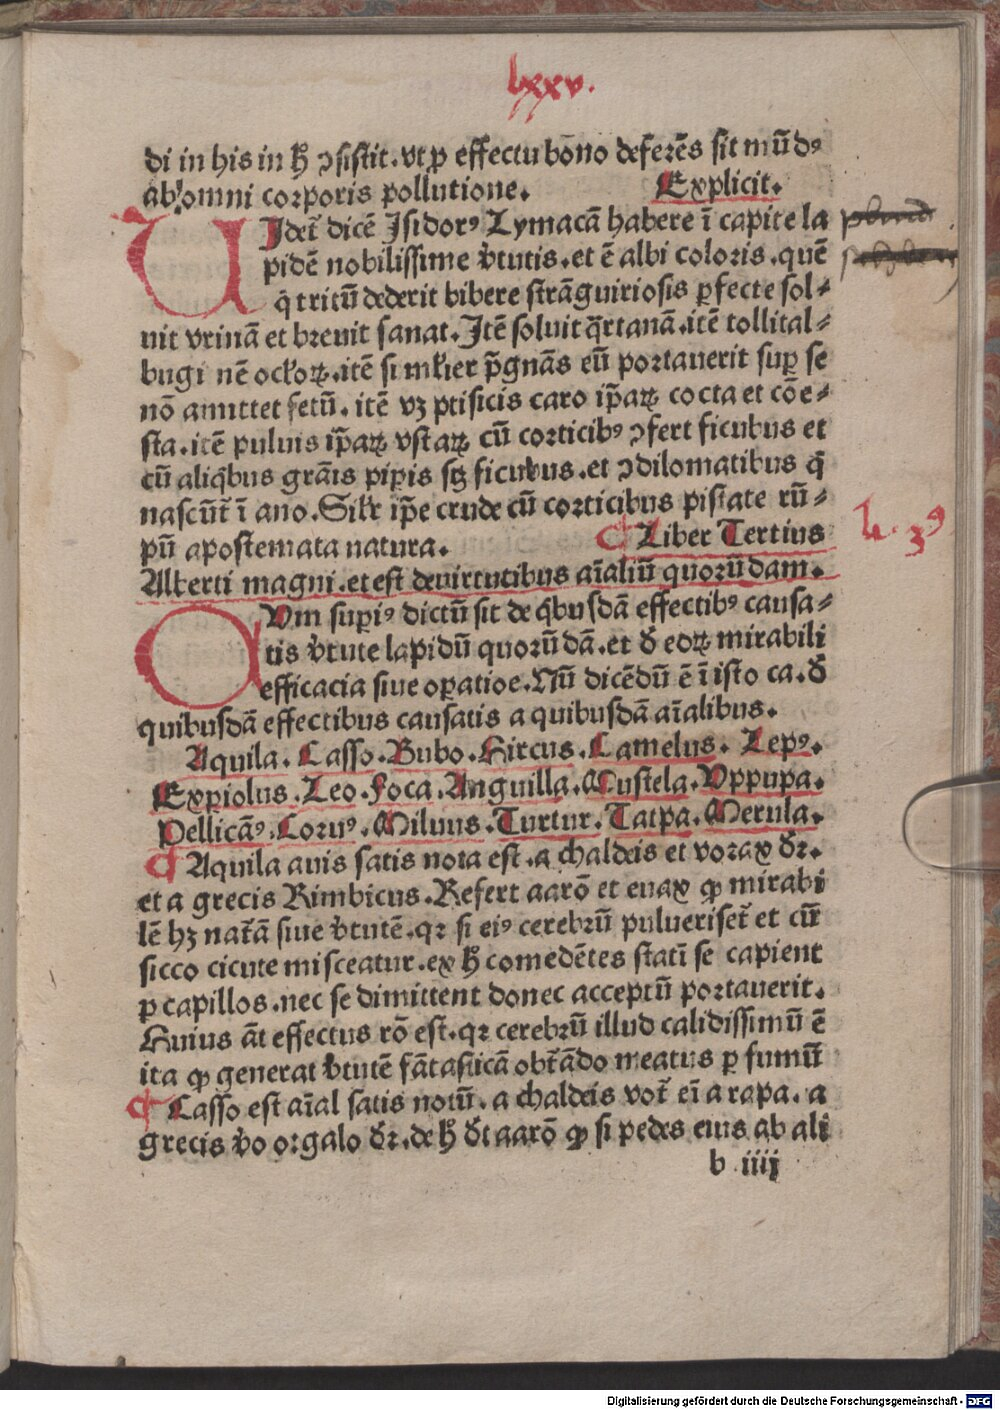 lxxv.
di in his in hͦ ꝯsistit. vt ꝑ effectu bōno deferēs sit mūdꝰ
ab omni corporis pollutione. Explicit.
UIdet᷑ dicē Isidorꝰ Lymacā habere ī capite la
pidē nobilissime v̓tutis. et ē albi coloris. quē
q̄ tritū dederit bibere strāguiriosis ꝑfecte sol-
uit vrinā et breuit sanat. Itē soluit q̄rtanā. itē tollit al-
bugi nē oculoꝝ. itē si mulier p̄gnās eū portauerit suꝑ se
nō amittet fetū. itē vꝫ ptisicis caro ip̄aꝝ cocta et cōe-
sta. itē puluis ip̄aꝝ vstaꝝ cū corticibꝰ ꝯfert ficubus et
cū aliq̄bus grāis pipis sꝫ ficubus. et ꝯdilomatibus q̄
nascūt᷑ ī ano. Silr ip̄e crude cū corticibus pistate rū-
pū apostemata natura. ¶ Liber Tertius
L. 3ꝰ
Alberti magni. et est de virtutibus aīaliū quorūdam.
CVm supiꝰ dictū sit de q̄busdā effectibꝰ causa-
tis v̓tute lapidū quorūdā. et d̄ eoꝝ mirabili
efficacia siue oꝑatioe. Nū dicēdū ē ī isto ca. d̄
quibusdā effectibus causatis a quibusdā aīalibus.
Aquila. Casso. Bubo. Hircus. Camelus. Lepꝰ.
Expiolus. Leo. Foca. Anguilla. Mustela. Vppupa.
Pellicāꝰ. Coruꝰ. Miluus. Turtur. Talpa. Merula.
¶ Aquila auis satis nota est. a chaldeis et vorax dr̄.
et a grecis Rimbicus. Refert aarō et euax ꝙ mirabi
lē hꝫ nat᷑ā siue v̓tutē. qꝛ si eiꝰ cerebrū pulueriset᷑ et cū
sicco cicute misceatur. ex hͦ comedētes statī se capient
ꝑ capillos. nec se dimittent donec acceptū portauerit.
Huius āt effectus rō est. qꝛ cerebrū illud calidissimū ē
ita ꝙ generat v̓tutē fātasticā obt᷑ādo meatus ꝑ fumū
¶ Casso est aīal satis notū. a chaldeis vot᷑ eī a rapa. a
grecis v̓o orgalo dr̄. de hͦ dt̄ aarō ꝙ si pedes eius ab ali
b iiij
Digitalisierung gefördert durch die Deutsche Forschungsgemeinschaft - DFG